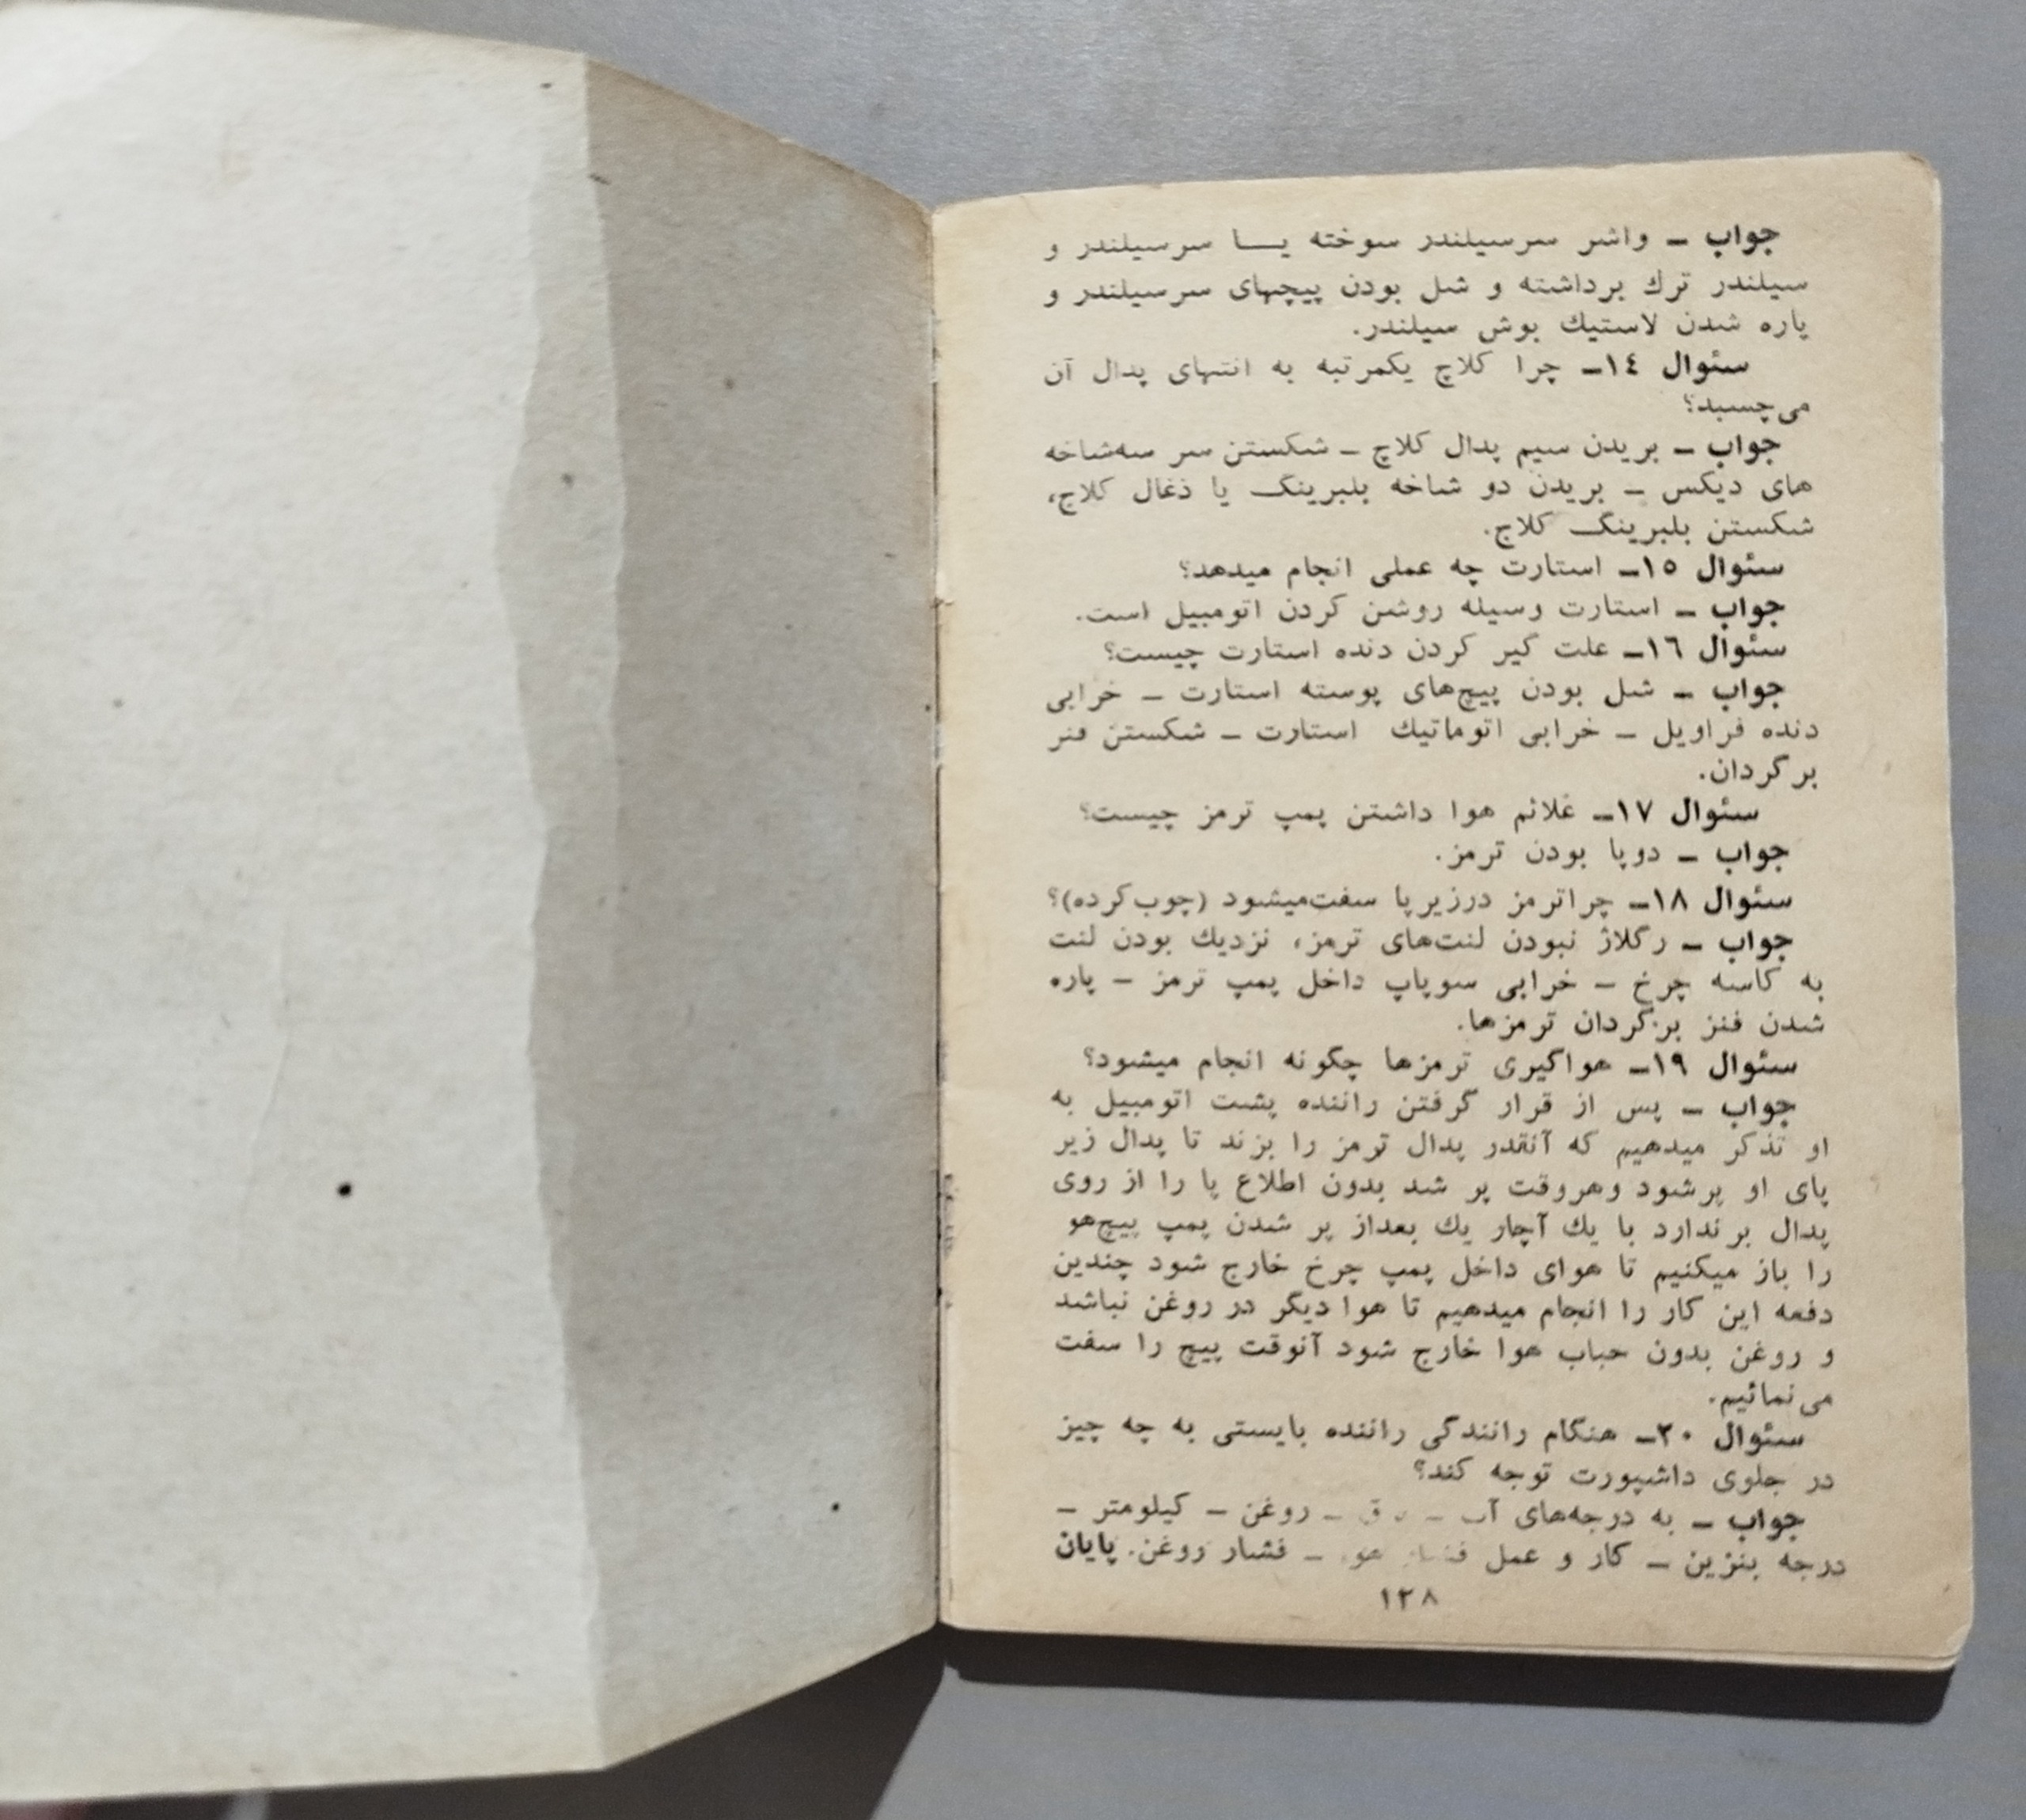 جواب ـ واشر سرسیلندر سوخته یـــا سرسیلندر و
سیلندر ترك برداشته و شل بودن پیچهای سرسیلندر و
پاره شدن لاستیك بوش سیلندر.
سئوال ١٤ـ چرا کلاچ یکمرتبه به انتهای پدال آن
می‌چسبد؟
جواب ـ بریدن سیم پدال کلاچ ـ شکستن سر سه‌شاخه
های دیکس ـ بریدن دو شاخه بلبرینگ یا ذغال کلاچ،
شکستن بلبرینگ کلاج.
سئوال ١٥ـ استارت چه عملی انجام میدهد؟
جواب ـ استارت وسیله روشن کردن اتومبیل است.
سئوال ١٦ـ علت گیر کردن دنده استارت چیست؟
جواب ـ شل بودن پیچ‌های پوسته استارت ـ خرابی
دنده فراویل ـ خرابی اتوماتیك استارت ـ شکستن فنر
برگردان.
سئوال ١٧ـ علائم هوا داشتن پمپ ترمز چیست؟
جواب ـ دوپا بودن ترمز.
سئوال ١٨ـ چراترمز درزیرپا سفت‌میشود (چوب‌کرده)؟
جواب ـ رگلاژ نبودن لنت‌های ترمز، نزدیك بودن لنت
به کاسه چرخ ـ خرابی سوپاپ داخل پمپ ترمز ـ پاره
شدن فنز برگردان ترمزها.
سئوال ١٩ـ هواگیری ترمزها چگونه انجام میشود؟
جواب ـ پس از قرار گرفتن راننده پشت اتومبیل به
او تذکر میدهیم که آنقدر پدال ترمز را بزند تا پدال زیر
پای او پرشود وهروقت پر شد بدون اطلاع پا را از روی
پدال برندارد با یك آچار یك بعداز پر شدن پمپ پیچ‌هو
را باز میکنیم تا هوای داخل پمپ چرخ خارج شود چندین
دفعه این کار را انجام میدهیم تا هوا دیگر در روغن نباشد
و روغن بدون حباب هوا خارج شود آنوقت پیچ را سفت
می‌نمائیم.
سئوال ٢٠ـ هنگام رانندگی راننده بایستی به چه چیز
در جلوی داشپورت توجه کند؟
جواب ـ به درجه‌های آب ـ ـ روغن ـ کیلومتر ـ
درجه بنزین ـ کار و عمل ـ فشار روغن. پایان
١٢٨